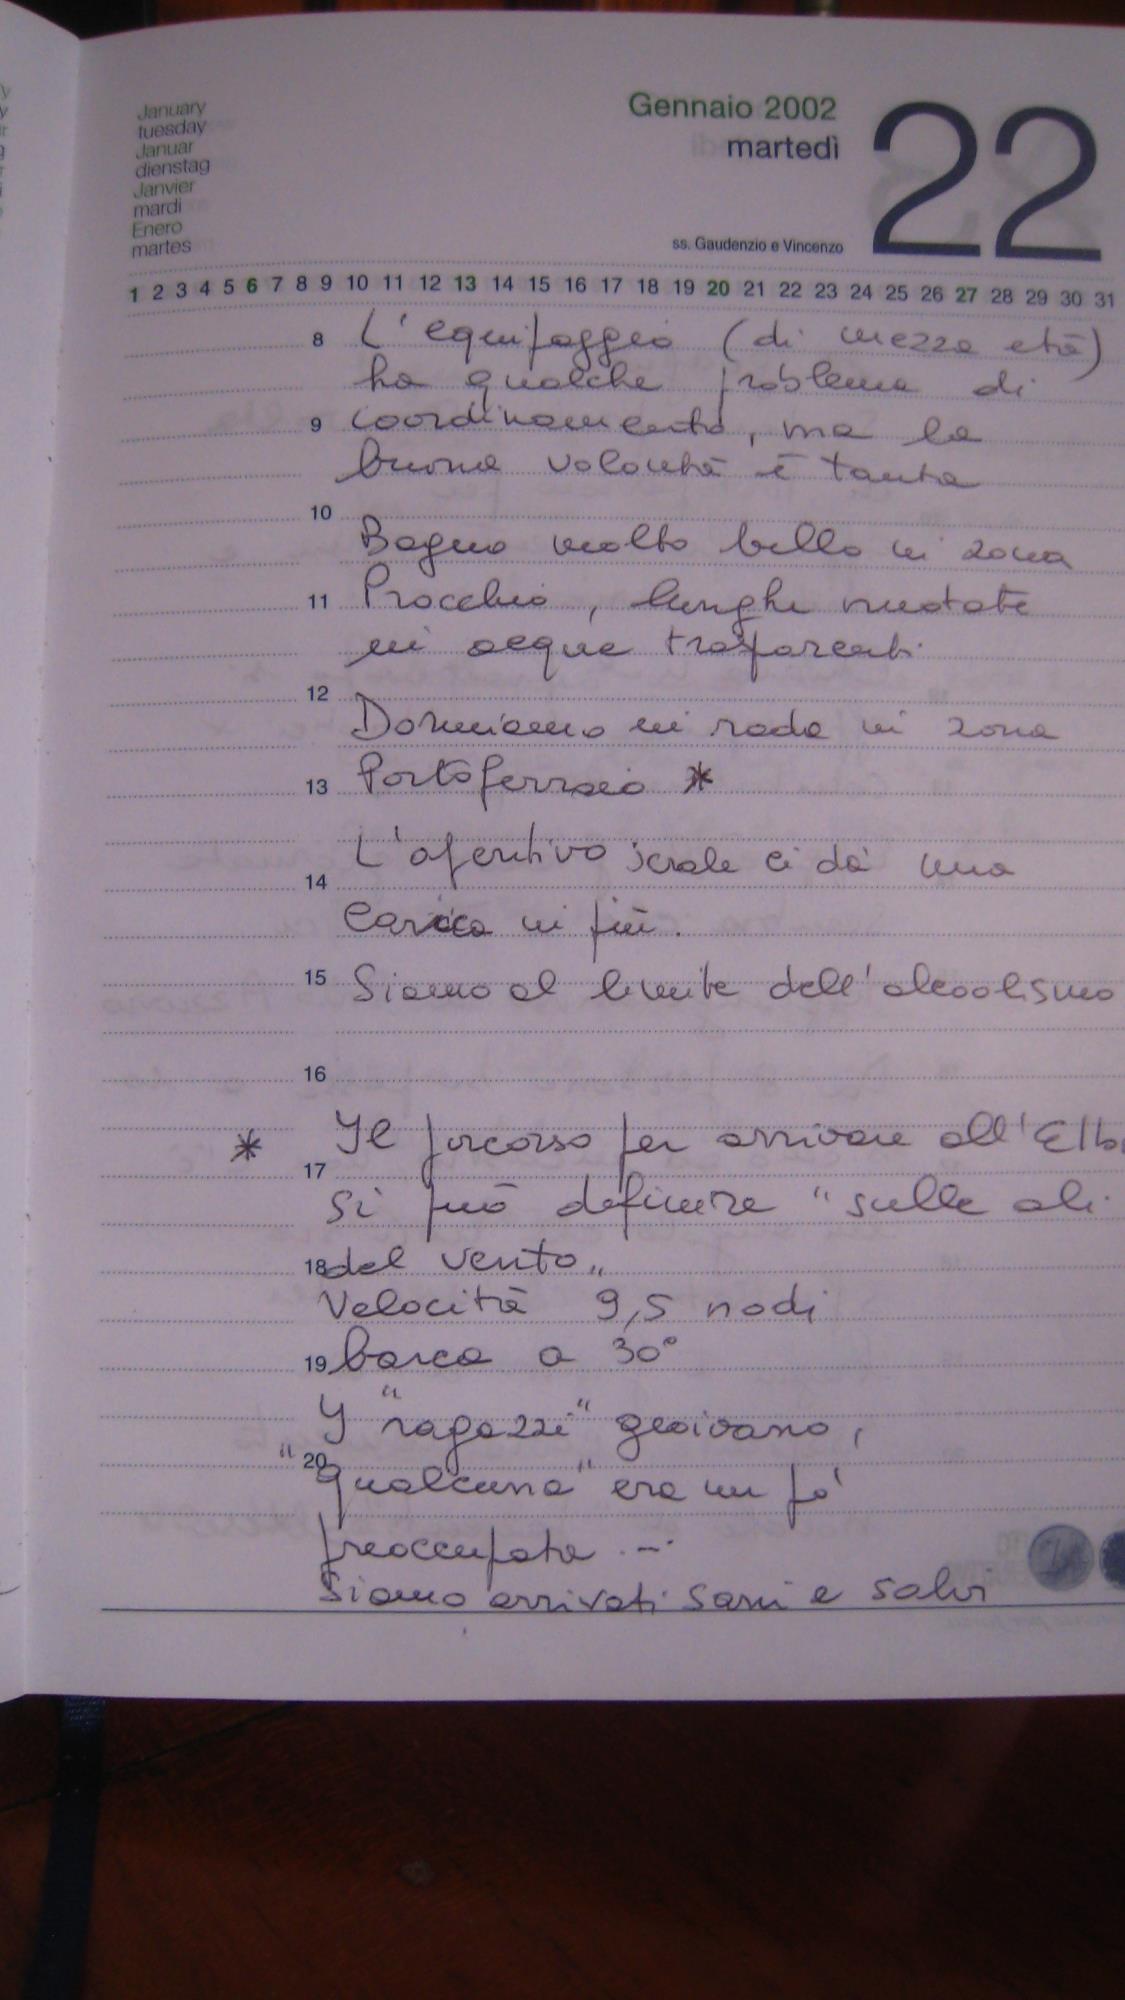 January
tuesday
Januar
dienstag
Janvier
mardi
Enero
martes
Gennaio 2002
martedì
22
ss. Gaudenzio e Vincenzo
1 2 3 4 5 6 7 8 9 10 11 12 13 14 15 16 17 18 19 20 21 22 23 24 25 26 27 28 29 30 31
8 L'equipaggio (di mezza età)
ha qualche problema di
9 coordinamento, ma la
buona volontà è tanta
10
Bagno molto bello in zona
11 Procchio, lunghe nuotate
in acque trasparenti
12
Dormiamo in rada in zona
13 Portoferraio *
L'aperitivo serale ci dà una
14
carica in più.
15 Siamo al limite dell'alcoolismo
16
* Il percorso per arrivare all'Elba
17
Si può definire "sulle ali
18 del vento"
Velocità 9,5 nodi
19 barca a 30°
I "ragazzi" gioivano,
20 "qualcuna" era un po'
preoccupata ...
Siamo arrivati sani e salvi